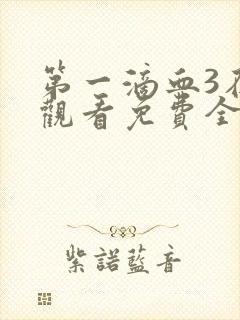 第一滴血3
觀看免費全
紫諾藍音